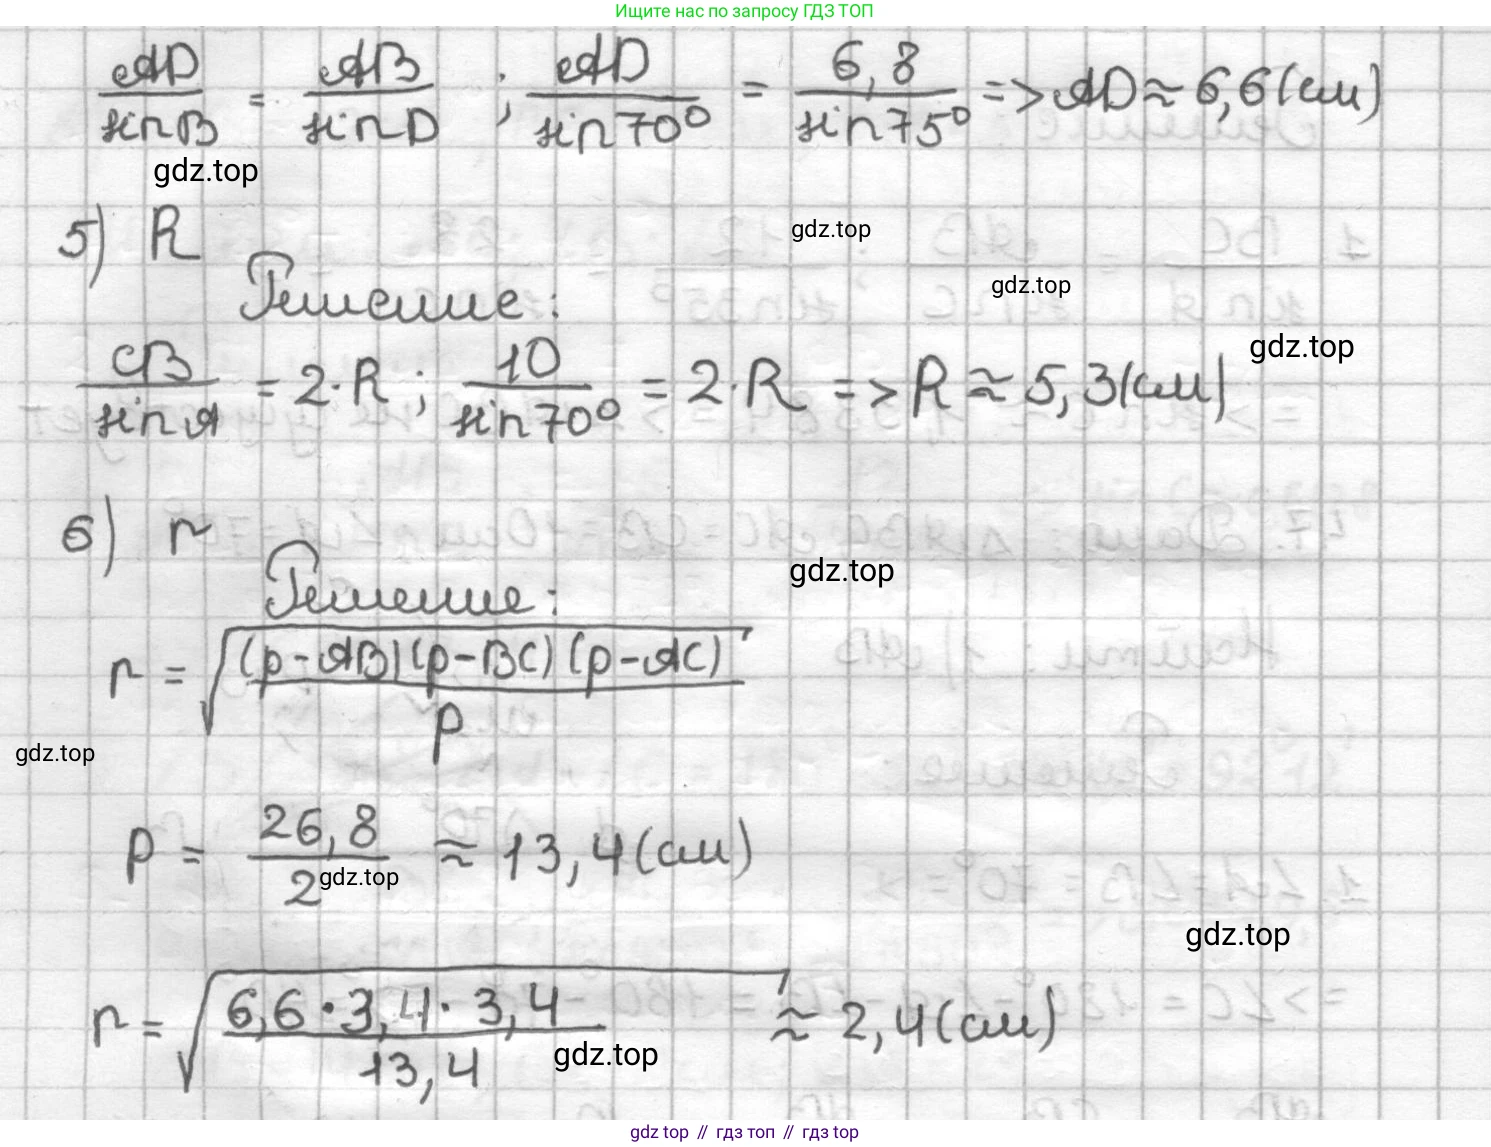 Ищите нас по запросу ГДЗ ТОП
AD/sinB = AB/sinD ; AD/sin70° = 6,8/sin75° => AD ≈ 6,6(см)
gdz.top
5) R
gdz.top
Решение:
gdz.top
gdz.top
CB/sinA = 2·R ; 10/sin70° = 2·R => R ≈ 5,3(см)
6) r
gdz.top
Решение:
r = √((p-AB)(p-BC)(p-AC)/p)
gdz.top
p = 26,8/2 ≈ 13,4(см)
gdz.top
gdz.top
r = √(6,6·3,4·3,4/13,4) ≈ 2,4(см)
gdz.top
gdz top // гдз топ // гдз top